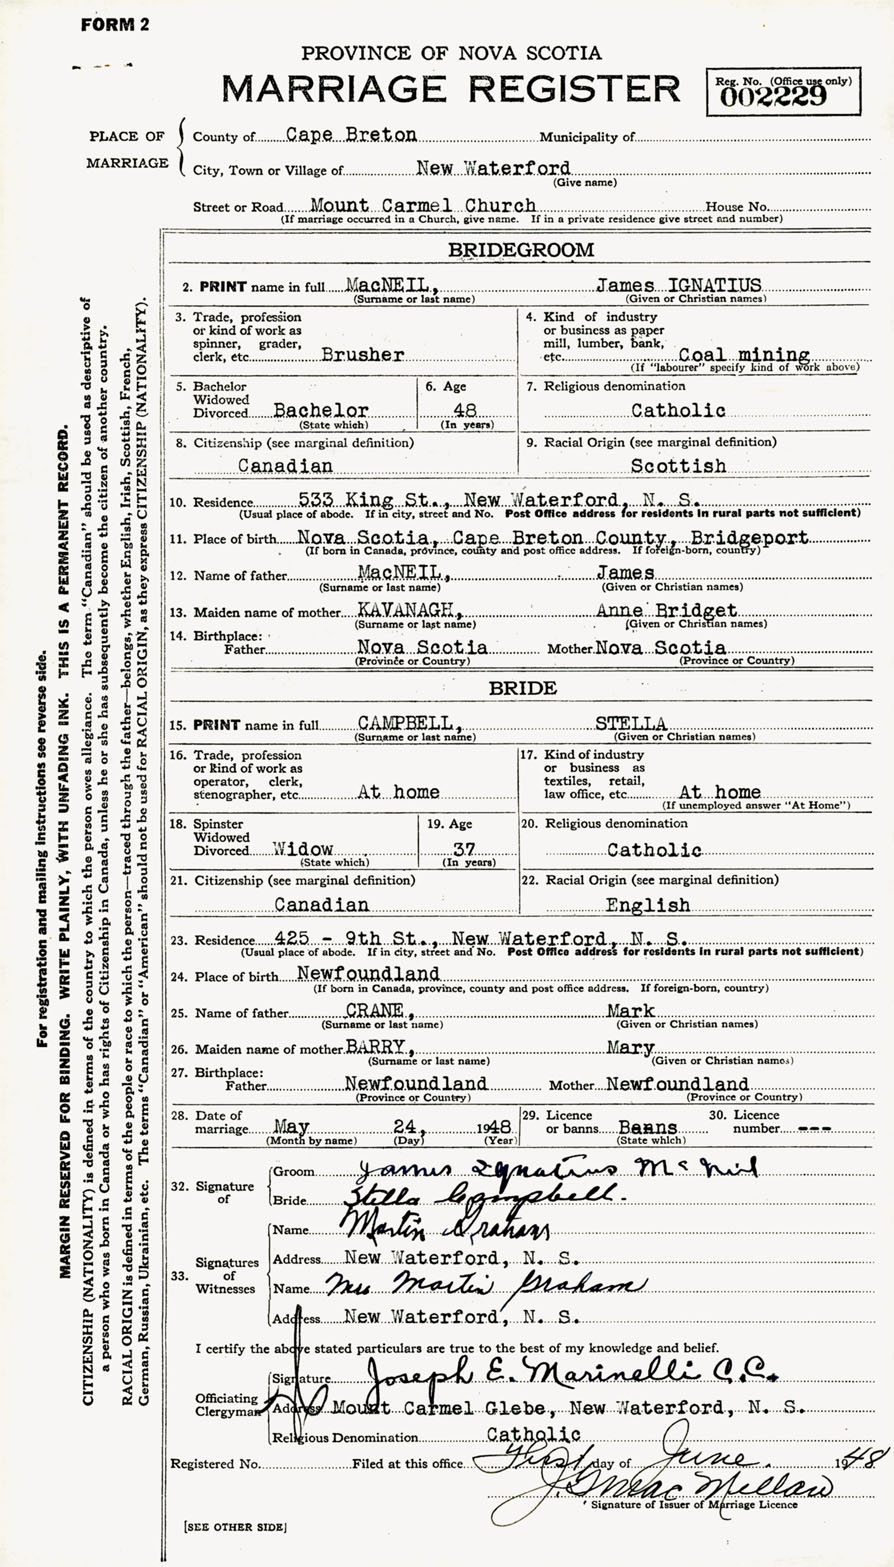 FORM 2
PROVINCE OF NOVA SCOTIA
MARRIAGE REGISTER
Reg. No. (Office use only)
002229
PLACE OF MARRIAGE
County of Cape Breton Municipality of
City, Town or Village of New Waterford
(Give name)
Street or Road Mount Carmel Church House No.
(If marriage occurred in a Church, give name. If in a private residence give street and number)
BRIDEGROOM
2. PRINT name in full MacNEIL, James IGNATIUS
(Surname or last name) (Given or Christian names)
3. Trade, profession
or kind of work as
spinner, grader,
clerk, etc. Brusher
4. Kind of industry
or business as paper
mill, lumber, bank,
etc. Coal mining
(If "labourer" specify kind of work above)
5. Bachelor
Widowed
Divorced Bachelor
(State which)
6. Age
48
(In years)
7. Religious denomination
Catholic
8. Citizenship (see marginal definition)
Canadian
9. Racial Origin (see marginal definition)
Scottish
10. Residence 533 King St., New Waterford, N. S.
(Usual place of abode. If in city, street and No. Post Office address for residents in rural parts not sufficient)
11. Place of birth Nova Scotia, Cape Breton County, Bridgeport
(If born in Canada, province, county and post office address. If foreign-born, country)
12. Name of father MacNEIL, James
(Surname or last name) (Given or Christian names)
13. Maiden name of mother KAVANAGH, Anne Bridget
(Surname or last name) (Given or Christian names)
14. Birthplace:
Father Nova Scotia Mother Nova Scotia
(Province or Country) (Province or Country)
BRIDE
15. PRINT name in full CAMPBELL, STELLA
(Surname or last name) (Given or Christian names)
16. Trade, profession
or kind of work as
operator, clerk,
stenographer, etc. At home
17. Kind of industry
or business as
textiles, retail,
law office, etc. At home
(If unemployed answer "At Home")
18. Spinster
Widowed
Divorced Widow
(State which)
19. Age
37
(In years)
20. Religious denomination
Catholic
21. Citizenship (see marginal definition)
Canadian
22. Racial Origin (see marginal definition)
English
23. Residence 425 - 9th St., New Waterford, N. S.
(Usual place of abode. If in city, street and No. Post Office address for residents in rural parts not sufficient)
24. Place of birth Newfoundland
(If born in Canada, province, county and post office address. If foreign-born, country)
25. Name of father CRANE, Mark
(Surname or last name) (Given or Christian names)
26. Maiden name of mother BARRY, Mary
(Surname or last name) (Given or Christian names)
27. Birthplace:
Father Newfoundland Mother Newfoundland
(Province or Country) (Province or Country)
28. Date of
marriage May 24, 1948
(Month by name) (Day) (Year)
29. Licence
or banns Banns
(State which)
30. Licence
number ---
32. Signature of
Groom James Ignatius McNeil
Bride Stella Campbell.
33. Signatures of Witnesses
Name Martin Graham
Address New Waterford, N. S.
Name Mrs Martin Graham
Address New Waterford, N. S.
I certify the above stated particulars are true to the best of my knowledge and belief.
Officiating Clergyman
Signature Joseph E. Marinelli C.C.
Address Mount Carmel Glebe, New Waterford, N. S.
Religious Denomination Catholic
Registered No. Filed at this office First day of June 1948
J. G. MacMillan
Signature of Issuer of Marriage Licence
[SEE OTHER SIDE]
For registration and mailing instructions see reverse side.
MARGIN RESERVED FOR BINDING. WRITE PLAINLY, WITH UNFADING INK. THIS IS A PERMANENT RECORD.
CITIZENSHIP (NATIONALITY) is defined in terms of the country to which the person owes allegiance. The term "Canadian" should be used as descriptive of
a person who was born in Canada or who has rights of Citizenship in Canada, unless he or she has subsequently become the citizen of another country.
RACIAL ORIGIN is defined in terms of the people or race to which the person—traced through the father—belongs, whether English, Irish, Scottish, French,
German, Russian, Ukrainian, etc. The terms "Canadian" or "American" should not be used for RACIAL ORIGIN, as they express CITIZENSHIP (NATIONALITY).